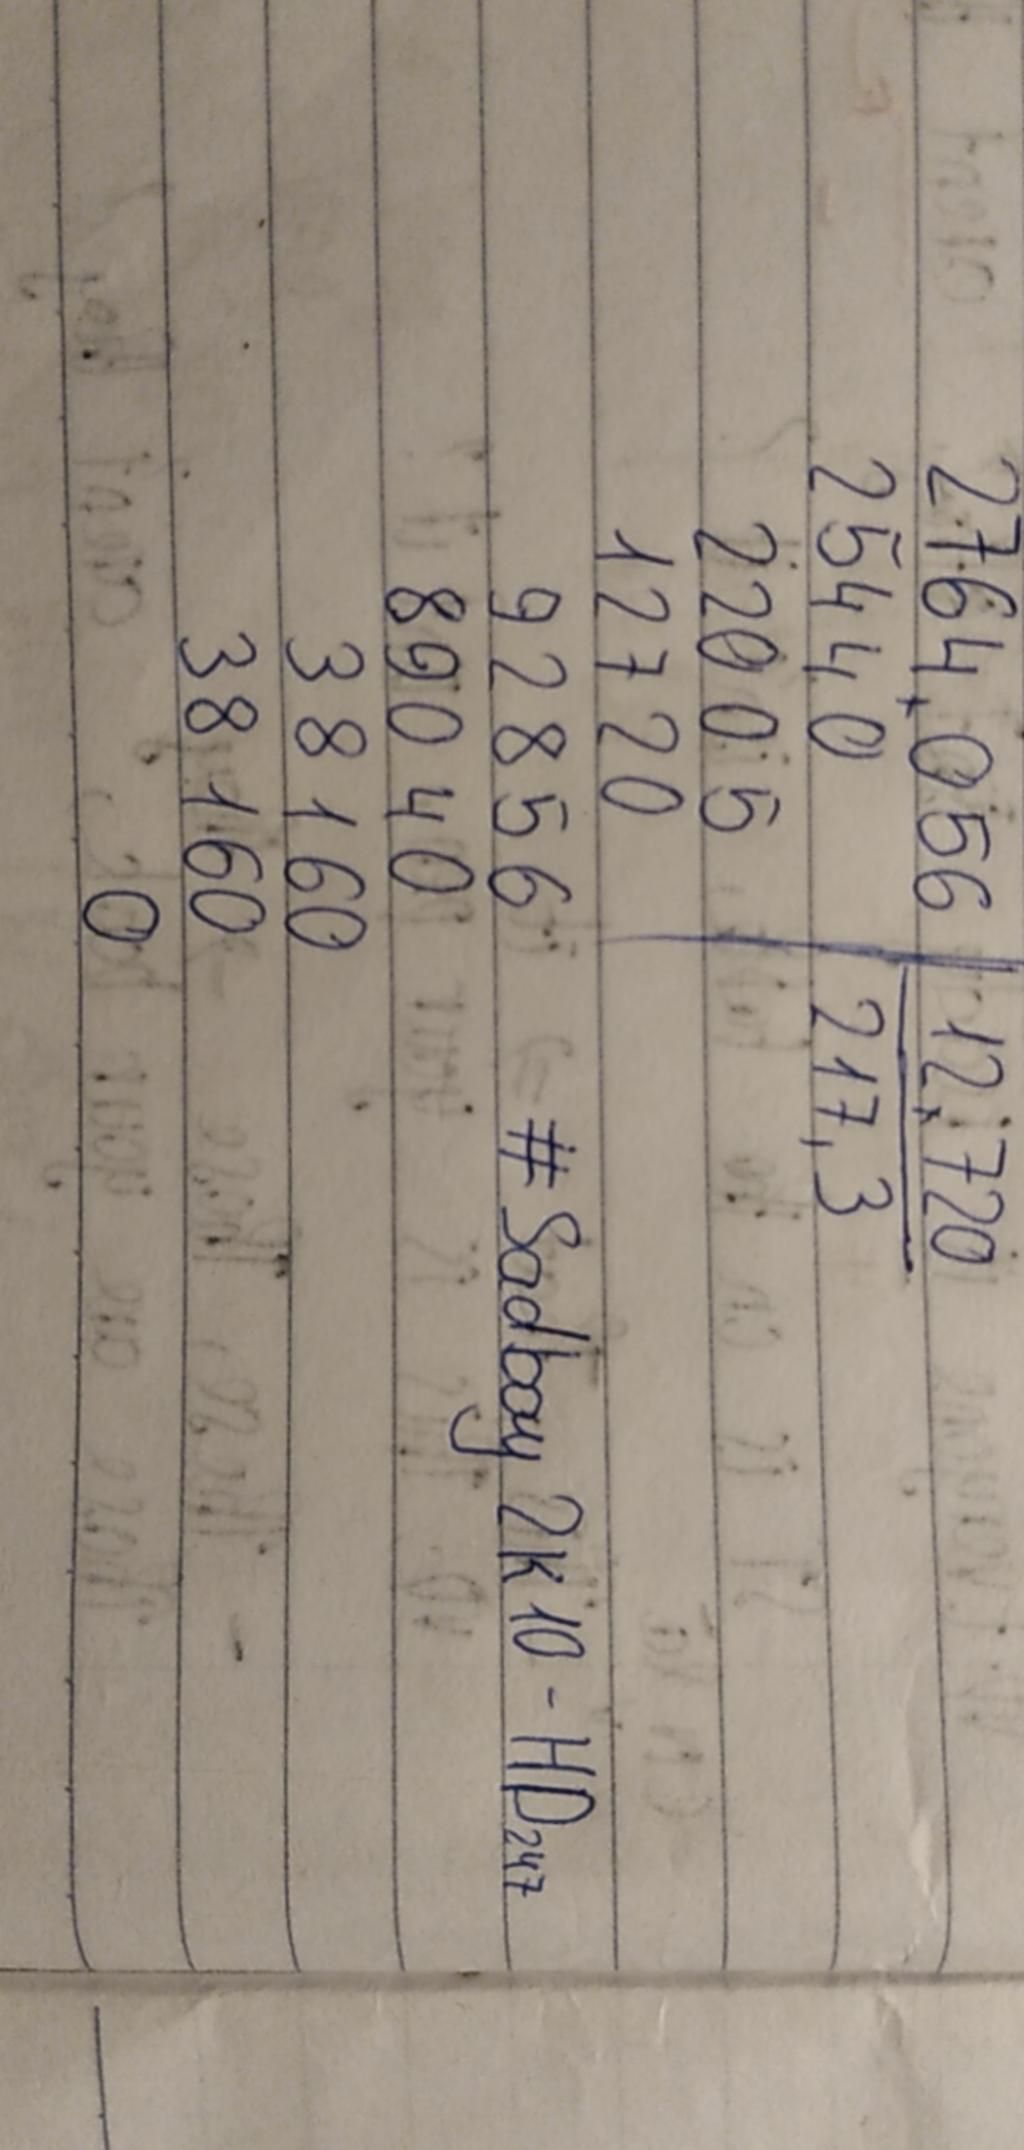 2764,056 12,720
25440 217,3
22005
12720
92856 #Sadboy 2k10-HD247
89040
38160
38160
0